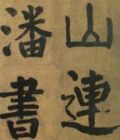 山連
潘書